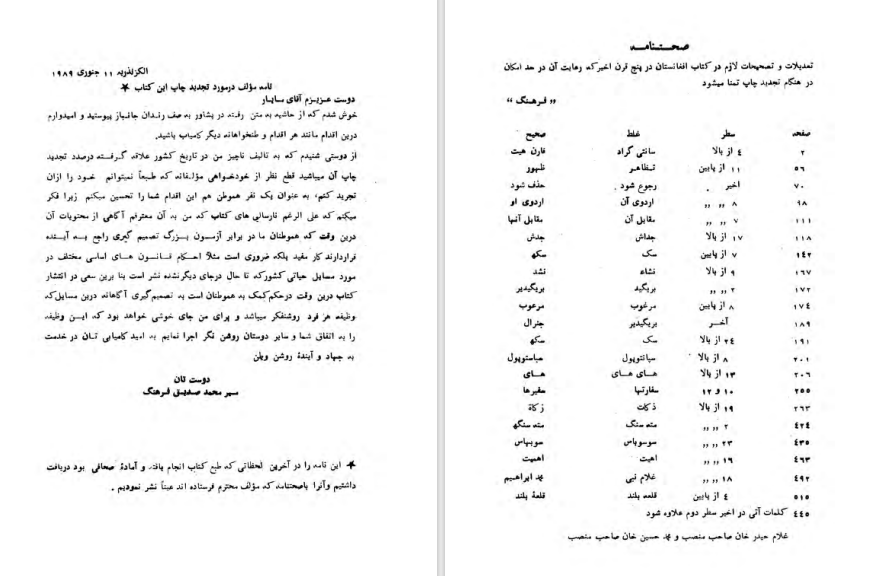 صحتنامه
تعدیلات و تصحیحات لازم در کتاب افغانستان در پنج قرن اخیرکه رعایت آن در حد امکان
در هنگام تجدید چاپ تمنا میشود
" فرهنگ "
صفحه سطر غلط صحیح
۲ ٤ از بالا سانتی گراد فارن هیت
٥٦ ۱۱ از پایین تظاهر ظهور
۷۰ اخیر رجوع شود حذف شود
۹۸ ۸ ,, ,, اردوی آن اردوی او
۱۱۱ ۷ ,, ,, مقابل آن مقابل آنها
۱۱۸ ۱۷ از بالا جداش جدش
۱٤۲ ۷ از پایین سک سکھ
۱٦۷ ۹ از بالا نشاه نشد
۱۷۲ ۲ ,, ,, بریگید بریگیدیر
۱۷٤ ۸ از پایین مرغوب مرعوب
۱۸۹ آخر بریگیدیر جنرال
۱۹۱ ۲٤ از بالا سک سکھ
۲۰۱ ۸ از بالا سپانتوپول سباستوپول
۲۰٦ ۱۳ از بالا های های های
۲٥٥ ۱۰ و ۱۲ سفارتها سفیرها
۲٦۳ ۱۹ از بالا ذکات زکاة
٤۲٤ ۲ ,, ,, مته سنگ مته سنگھ
٤۳٥ ۲۳ ,, ,, سوسوباس سوبهاس
٤٦۳ ۱٦ ,, ,, اهیت اهمیت
٤۹۲ ۱۸ ,, ,, غلام نبی محمد ابراهیم
٥۱٥ ٤ از پایین قلعه بلند قلعۀ بلند
٤٤٥ کلمات آتی در اخیر سطر دوم علاوه شود
غلام حیدر خان صاحب منصب و محمد حسین خان صاحب منصب
الکزندریه ۱۱ جنوری ۱۹۸۹
نامه مؤلف درمورد تجدید چاپ این کتاب ★
دوست عزیزم آقای سایار
خوش شدم که از حاشیه به متن رفته در پشاور به صف رندان جانباز پیوستید و امیدوارم
درین اقدام مانند هر اقدام و طنخواهانه دیگر کامیاب باشید.
از دوستی شنیدم که به تالیف ناچیز من در تاریخ کشور علاقه گرفته درصدد تجدید
چاپ آن میباشید قطع نظر از خودخواهی مؤلفانه که طبعاً نمیتوانم خود را ازان
تجرید کنم، به عنوان یک نفر هموطن هم این اقدام شما را تحسین میکنم زیرا فکر
میکنم که علی الرغم نارسائی های کتاب که من به آن معترفم آگاهی از محتویات آن
درین وقت که هموطنان ما در برابر آزمون بزرگ تصمیم گیری راجع به آینده
قراردارند کار مفید بلکه ضروری است مثلاً احکام قانون های اساسی مختلف در
مورد مسایل حیاتی کشورکه تا حال درجای دیگرنشده نشر است بنا برین سعی در انتشار
کتاب درین وقت درحکم کمک به هموطنان است به تصمیم گیری آگاهانه درین مسایل که
وظیفه هر فرد روشنفکر میباشد و برای من جای خوشی خواهد بود که این وظیفه
را به اتفاق شما و سایر دوستان روشن نگر اجرا نمایم به امید کامیابی تان در خدمت
به جهاد و آیندۀ روشن وطن
دوست تان
میر محمد صدیق فرهنگ
★ این نامه را در آخرین لحظاتی که طبع کتاب انجام یافته و آمادۀ صحافی بود دریافت
داشتیم وآنرا باصحتنامه که مؤلف محترم فرستاده اند عیناً نشر نمودیم .